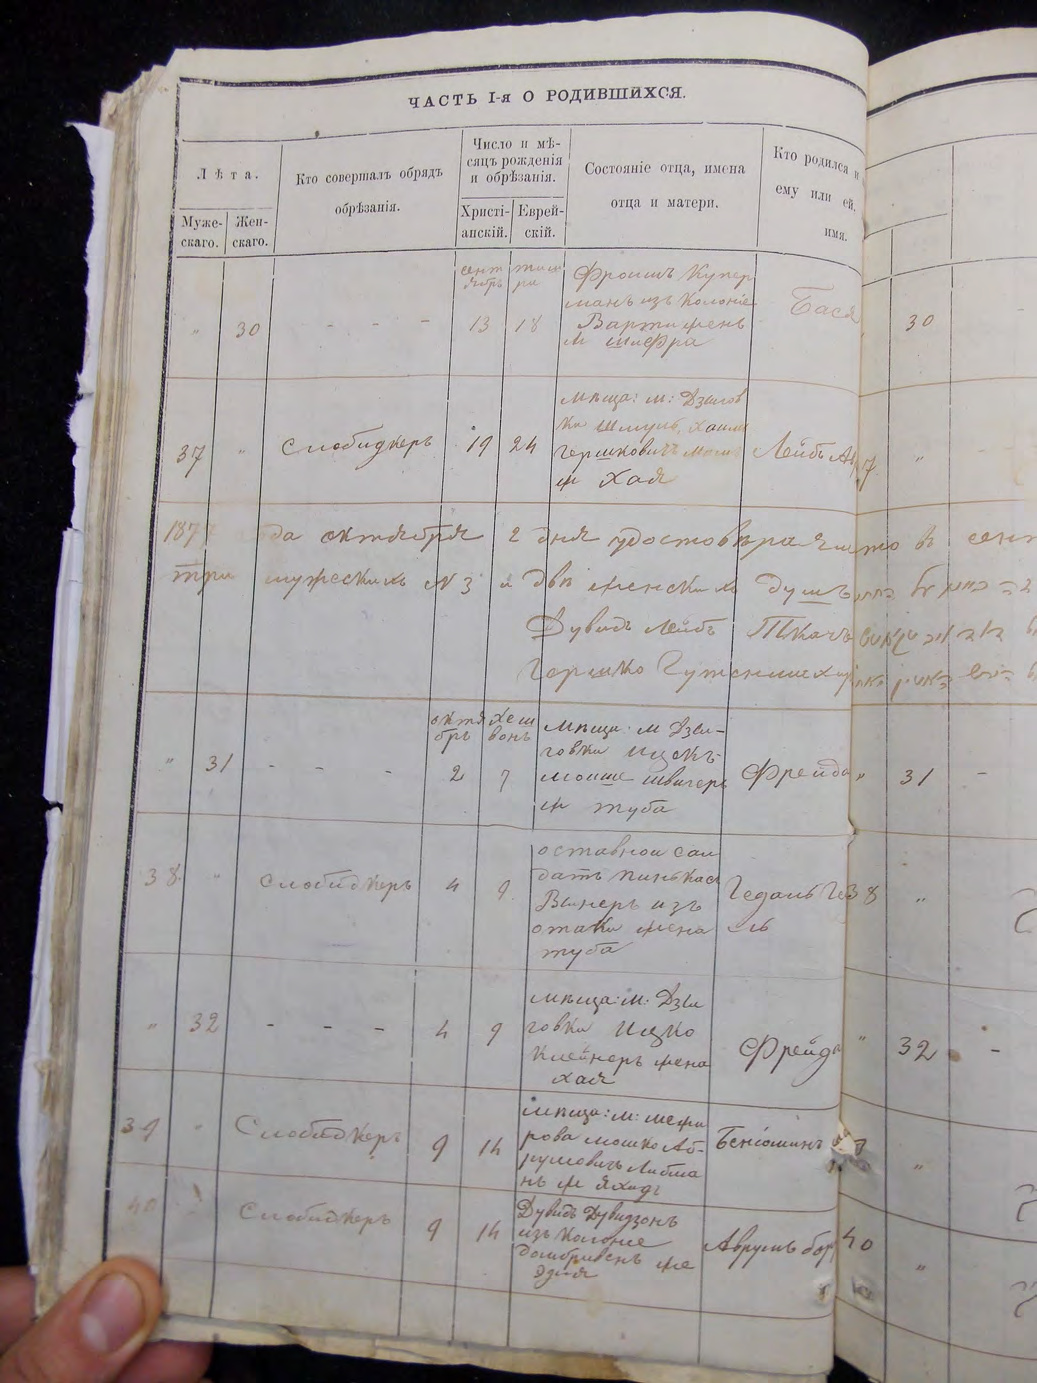 ЧАСТЬ I-я О РОДИВШИХСЯ.
Лѣта.
Муже-
скаго.
Жен-
скаго.
Кто совершалъ обрядъ
обрѣзанія.
Число и мѣ-
сяцъ рожденія
и обрѣзанія.
Христі-
анскій.
Еврей-
скій.
Состояніе отца, имена
отца и матери.
Кто родился и
ему или ей
имя.
" 30 - - -
сент
ябрь
тиш
ри
13 18
Фроимъ Купер
манъ изъ Колоніе
Варти жена
Шифра
Бася
30
37 " Слободкеръ 19 24
мѣща: м: Дзигов
ки Шмуль Хаим
Гершковичъ
ж Хая
Лейбъ
"
187 да октября 2 дня удостовѣряем что въ сент
три мужескихъ N 3 и двѣ женских душъ
Дувидъ Лейбъ Ткачъ
Гершко
" 31 - - -
октя
брь
хеш
вонъ
2 7
мѣща: м Дзи-
говки Ицекъ-
Моише
ж туба
Фрейда " 31 -
38 " Слободкеръ 4 9
оставнои сал
датъ Пинькас
Винеръ изъ
отаки жена
туба
Гедаль Ге
ль
38 "
" 32 - - - 4 9
мѣща: м: Дзи
говки Ицко
Клейнеръ жена
Хая
Фрейда " 32 -
39 " Слободкеръ 9 14
мѣща: м:
рова мошко Аб-
румовичъ Либма
нъ ж
Бенюминъ
"
40 Слободкеръ 9 14
Дувидъ Дувидзонъ
изъ Колоніе
домбривенъ же
Эдля
Аврумъ бер
40 "